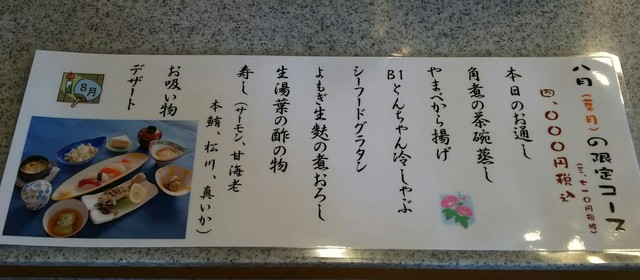 八月(葉月)の限定コース
四、〇〇〇円税込
本日のお通し
角煮の茶碗蒸し
やまべから揚げ
B1とんちゃん冷しゃぶ
シーフードグラタン
よもぎ生麩の煮おろし
生湯葉の酢の物
寿し(サーモン、甘海老
本鮪、松川、真いか)
お吸い物
デザート
8月